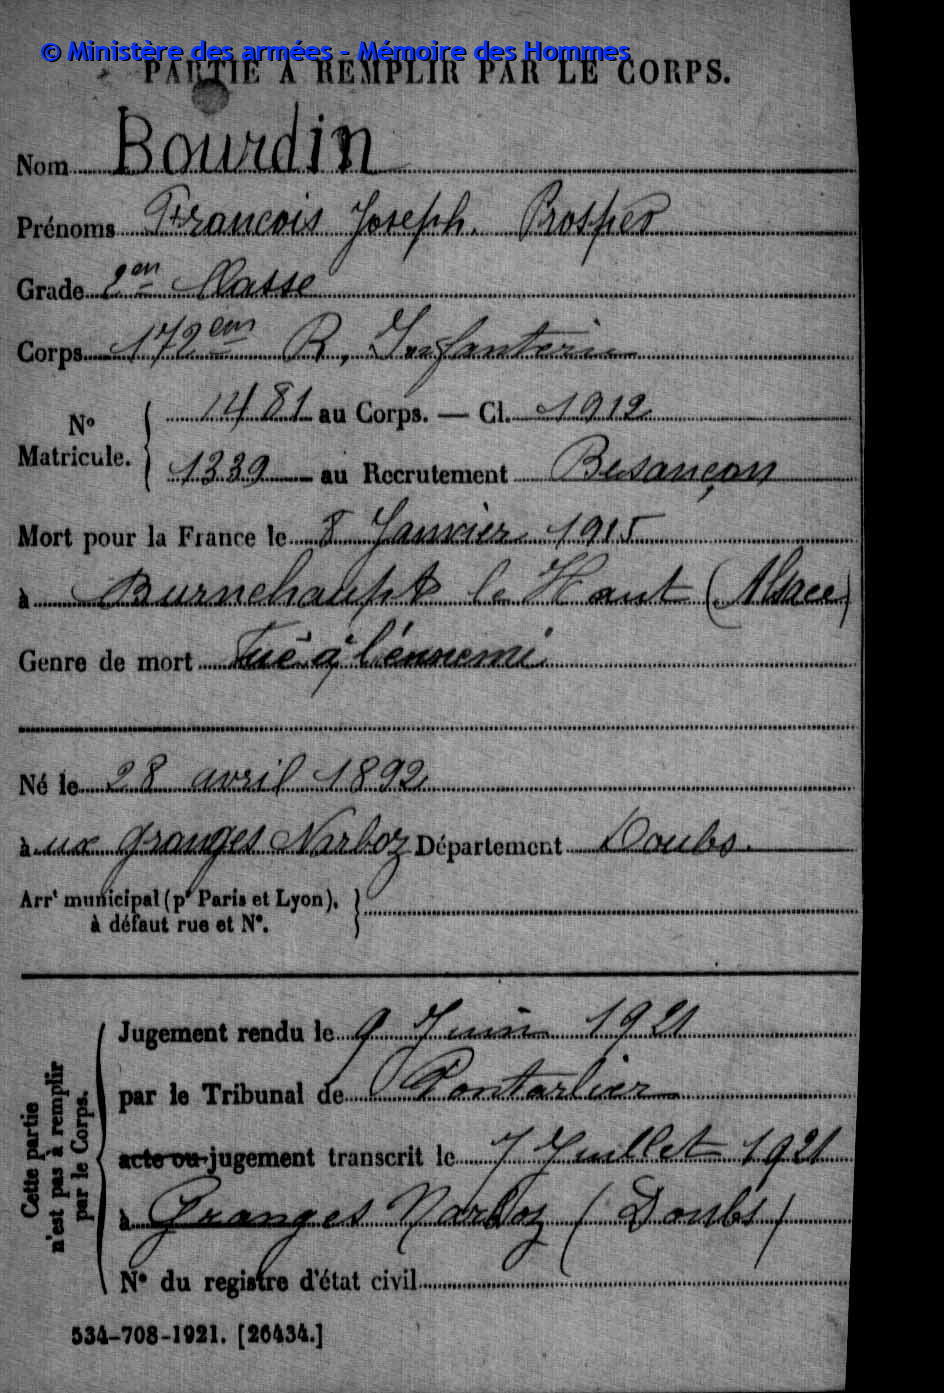 © Ministère des armées - Mémoire des Hommes
PARTIE À REMPLIR PAR LE CORPS.
Nom Bourdin
Prénoms Francois Joseph. Prosper
Grade 2en Classe
Corps 172em R. Infanterie
N° Matricule. 1481 au Corps. — Cl. 1912
1339 au Recrutement Besançon
Mort pour la France le 8 Janvier 1915
à Burnehaupt le Haut (Alsace)
Genre de mort Tué à l'ennemi
Né le 28 avril 1892
à ux granges Narboz Département Doubs.
Arrt municipal (pr Paris et Lyon),
à défaut rue et N°.
Cette partie
n'est pas à remplir
par le Corps.
Jugement rendu le 9 Juin 1921
par le Tribunal de Pontarlier
acte ou jugement transcrit le 7 Juillet 1921
à Granges Narboz (Doubs)
N° du registre d'état civil
534-708-1921. [26434.]